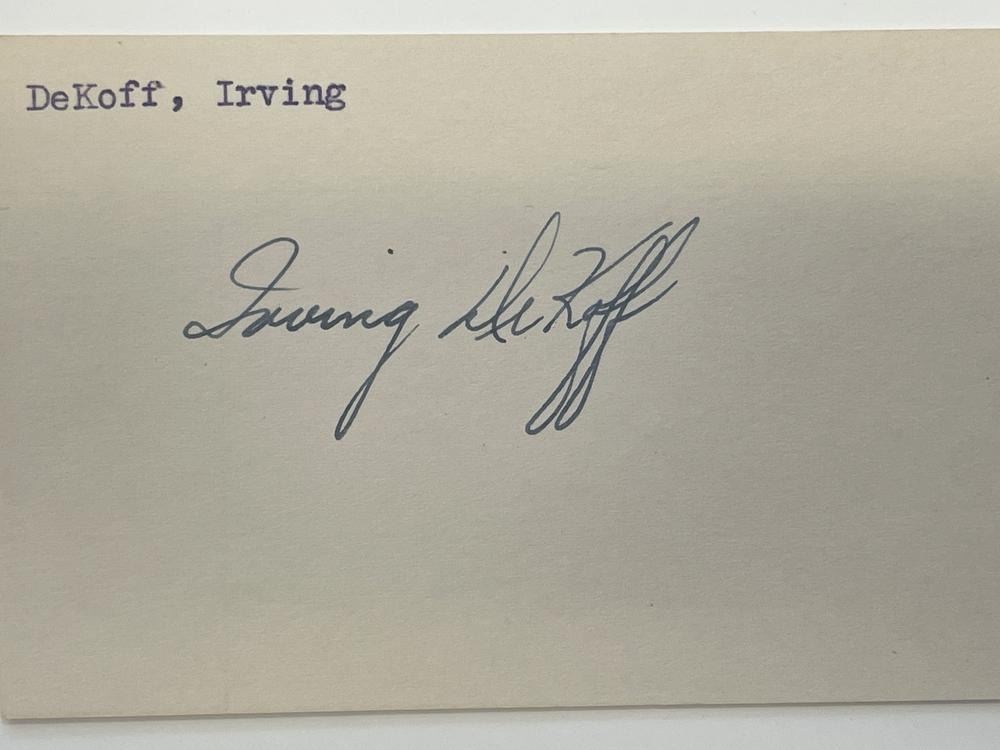 DeKoff, Irving
Irving DeKoff